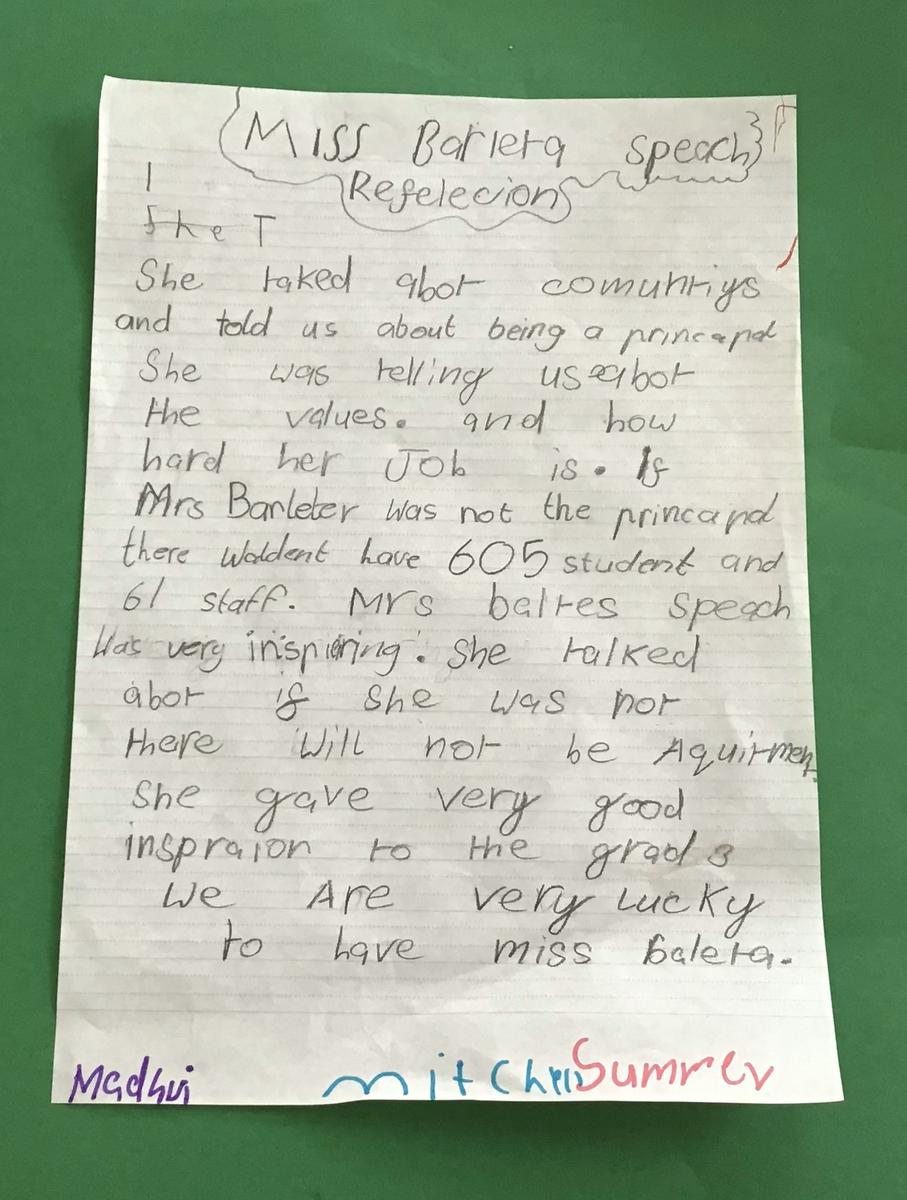 Miss Barleta Speach
Refelecions
I
the T
She taked abot comuntiys
and told us about being a princapal
She was telling us abot
the values. and how
hard her Job is. If
Mrs Barleter was not the princapal
there woldent have 605 student and
61 staff. Mrs baltes speach
Was very inspiering. She talked
abot if she was not
there Will not be Aquitment.
She gave very good
inspraion to the grad 3
We Are very lucky
to have miss baleta.
Madhvi Mitchell Summer